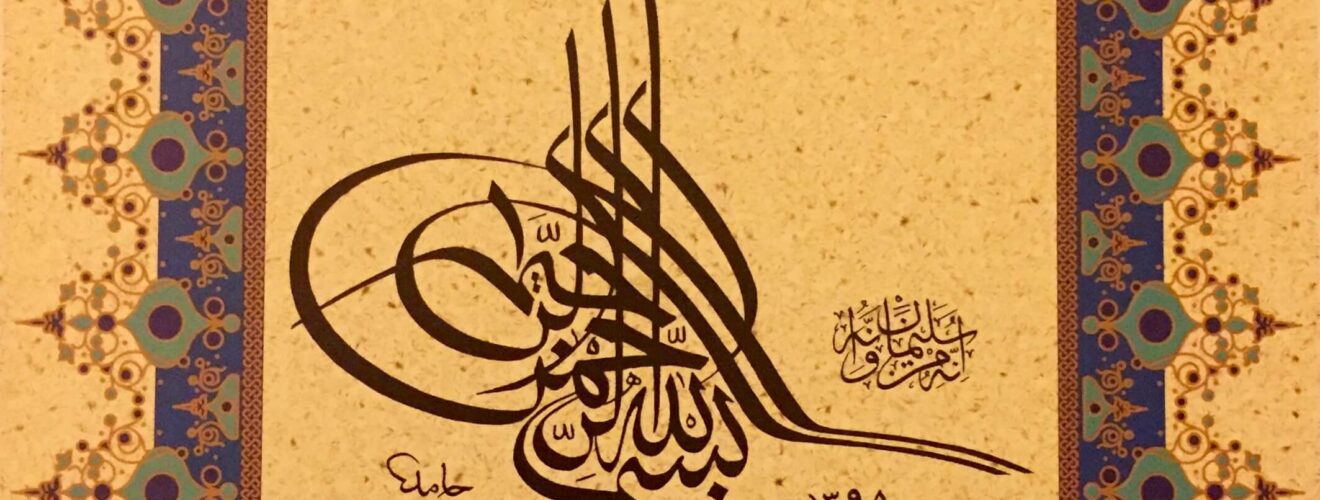 بسم الله الرحمن الرحيم
إنه من سليمان وإنه
حامد
١٣٩٨